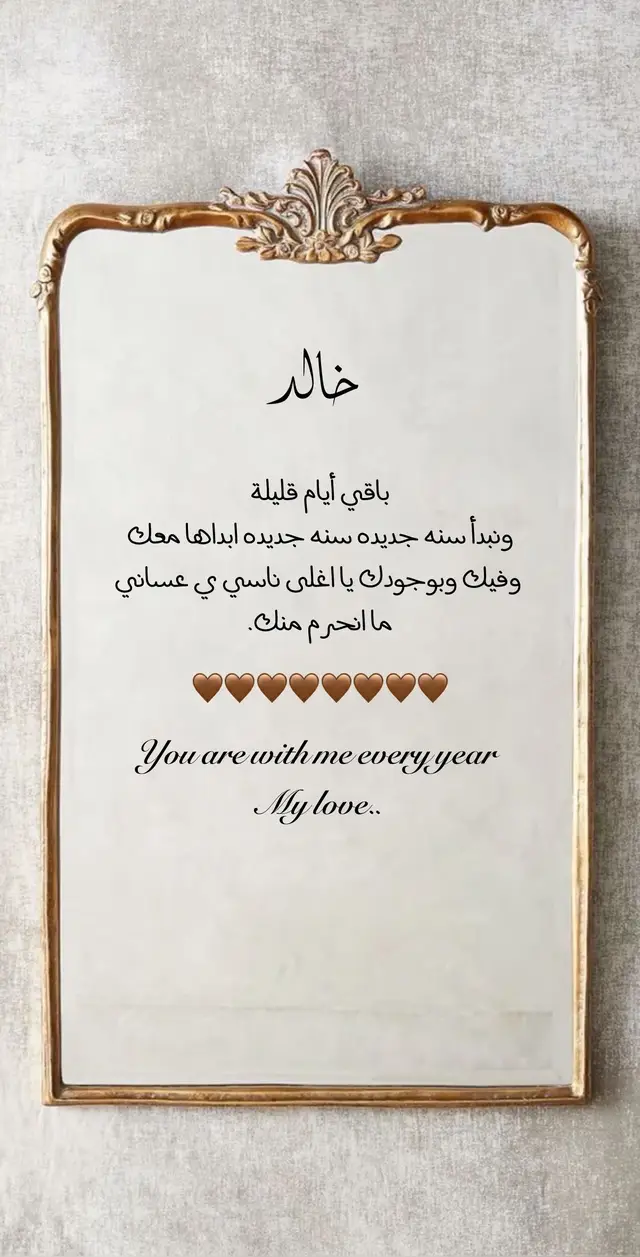 خالد
باقي أيام قليلة
ونبدأ سنه جديده سنه جديده ابداها معك
وفيك وبوجودك يا اغلى ناسي ي عساني
ما انحرم منك.
🤎🤎🤎🤎🤎🤎🤎🤎
You are with me every year
My love..